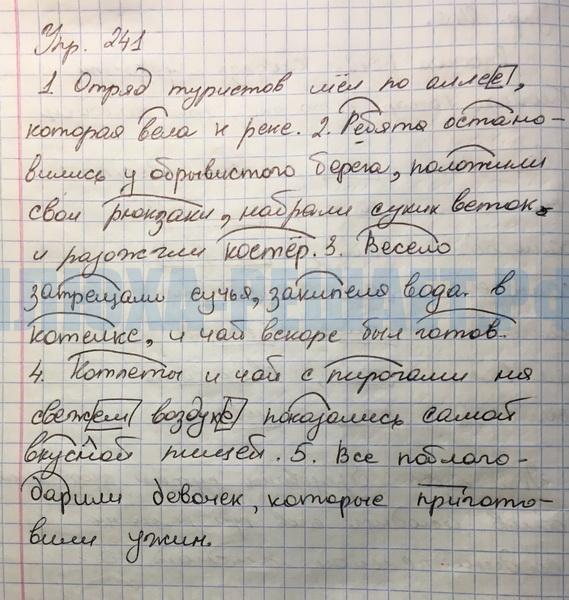 Упр. 241
1 Отряд туристов шёл по аллее,
которая вела к реке. 2. Ребята остано-
вились у обрывистого берега, положили
свои рюкзаки, набрали сухих веток
и разожгли костёр. 3. Весело
затрещали сучья, закипела вода в
котелке, и чай вскоре был готов.
4. Котлеты и чай с пирогами на
свежем воздухе показались самой
вкусной пищей. 5. Все поблаго-
дарили девочек, которые пригото-
вили ужин.